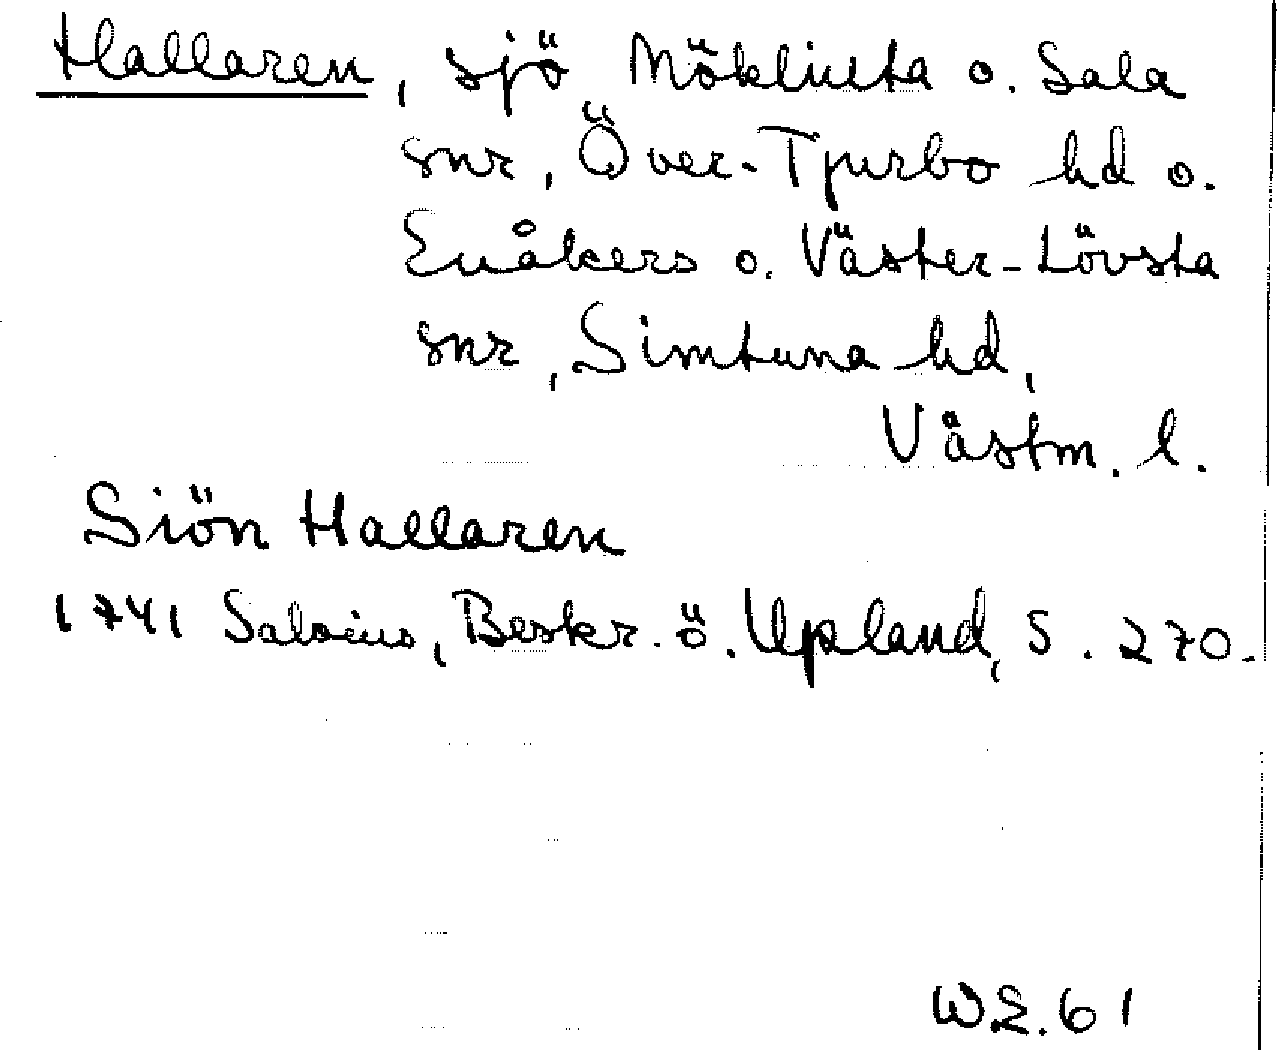 Hallaren, sjö Möklinta o. Sala
snr, Över-Tjurbo hd o.
Enåkers o. Väster-Lövsta
snr, Simtuna hd,
Västm. l.
Siön Hallaren
1741 Salvius, Beskr. ö. Upland, S. 270.
WL.61